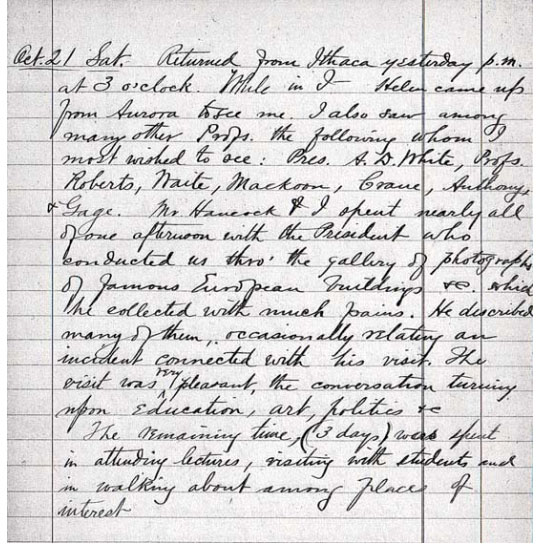 Oct. 21 Sat. Returned from Ithaca yesterday p.m.
at 3 o'clock. While in I Helen came up
from Aurora to see me. I also saw among
many other Profs. the following whom I
most wished to see: Pres. A. D. White, Profs.
Roberts, Waite, Mackoon, Crane, Anthony,
& Gage. Mr. Hancock & I spent nearly all
of one afternoon with the President who
conducted us thro' the gallery of photographs
of famous European buildings &c. which
he collected with much pains. He described
many of them, occasionally relating an
incident connected with his visit. The
visit was very pleasant, the conversation turning
upon Education, art, politics &c
The remaining time, (3 days) were spent
in attending lectures, visiting with students and
in walking about among places of
interest